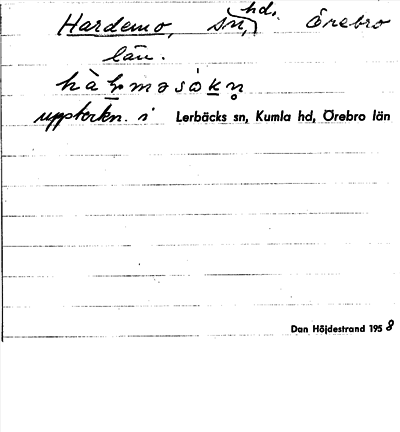 Hardemo, sn, hd, Örebro
län.
uppteckn. i Lerbäcks sn, Kumla hd, Örebro län
Dan Höjdestrand 1958